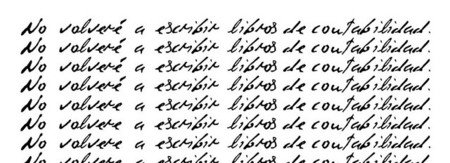 No volveré a escribir libros de contabilidad.
No volveré a escribir libros de contabilidad.
No volveré a escribir libros de contabilidad.
No volveré a escribir libros de contabilidad.
No volveré a escribir libros de contabilidad.
No volveré a escribir libros de contabilidad.
No volveré a escribir libros de contabilidad.